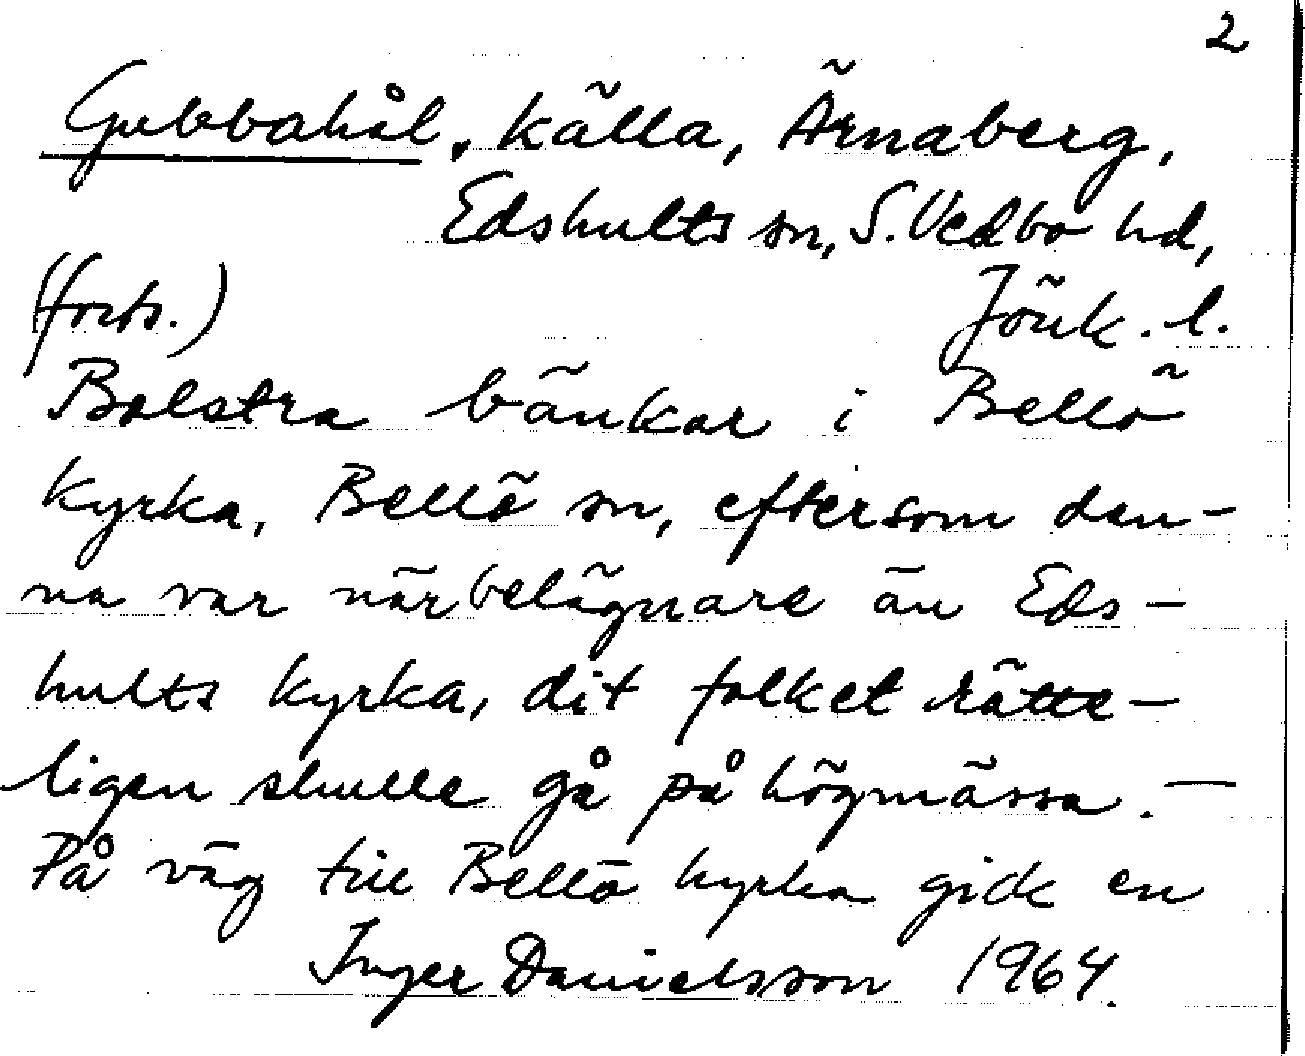 2
Gubbahål, källa, Ärnaberg,
Edshults sn, S. Vedbo hd,
(forts.) Jönk. l.
Bolstra bänkar i Bellö
kyrka, Bellö sn, eftersom den-
na var närbelägnare än Eds-
hults kyrka, dit folket rätte-
ligen skulle gå på högmässa. —
På väg till Bellö kyrka gick en
Inger Danielsson 1964.